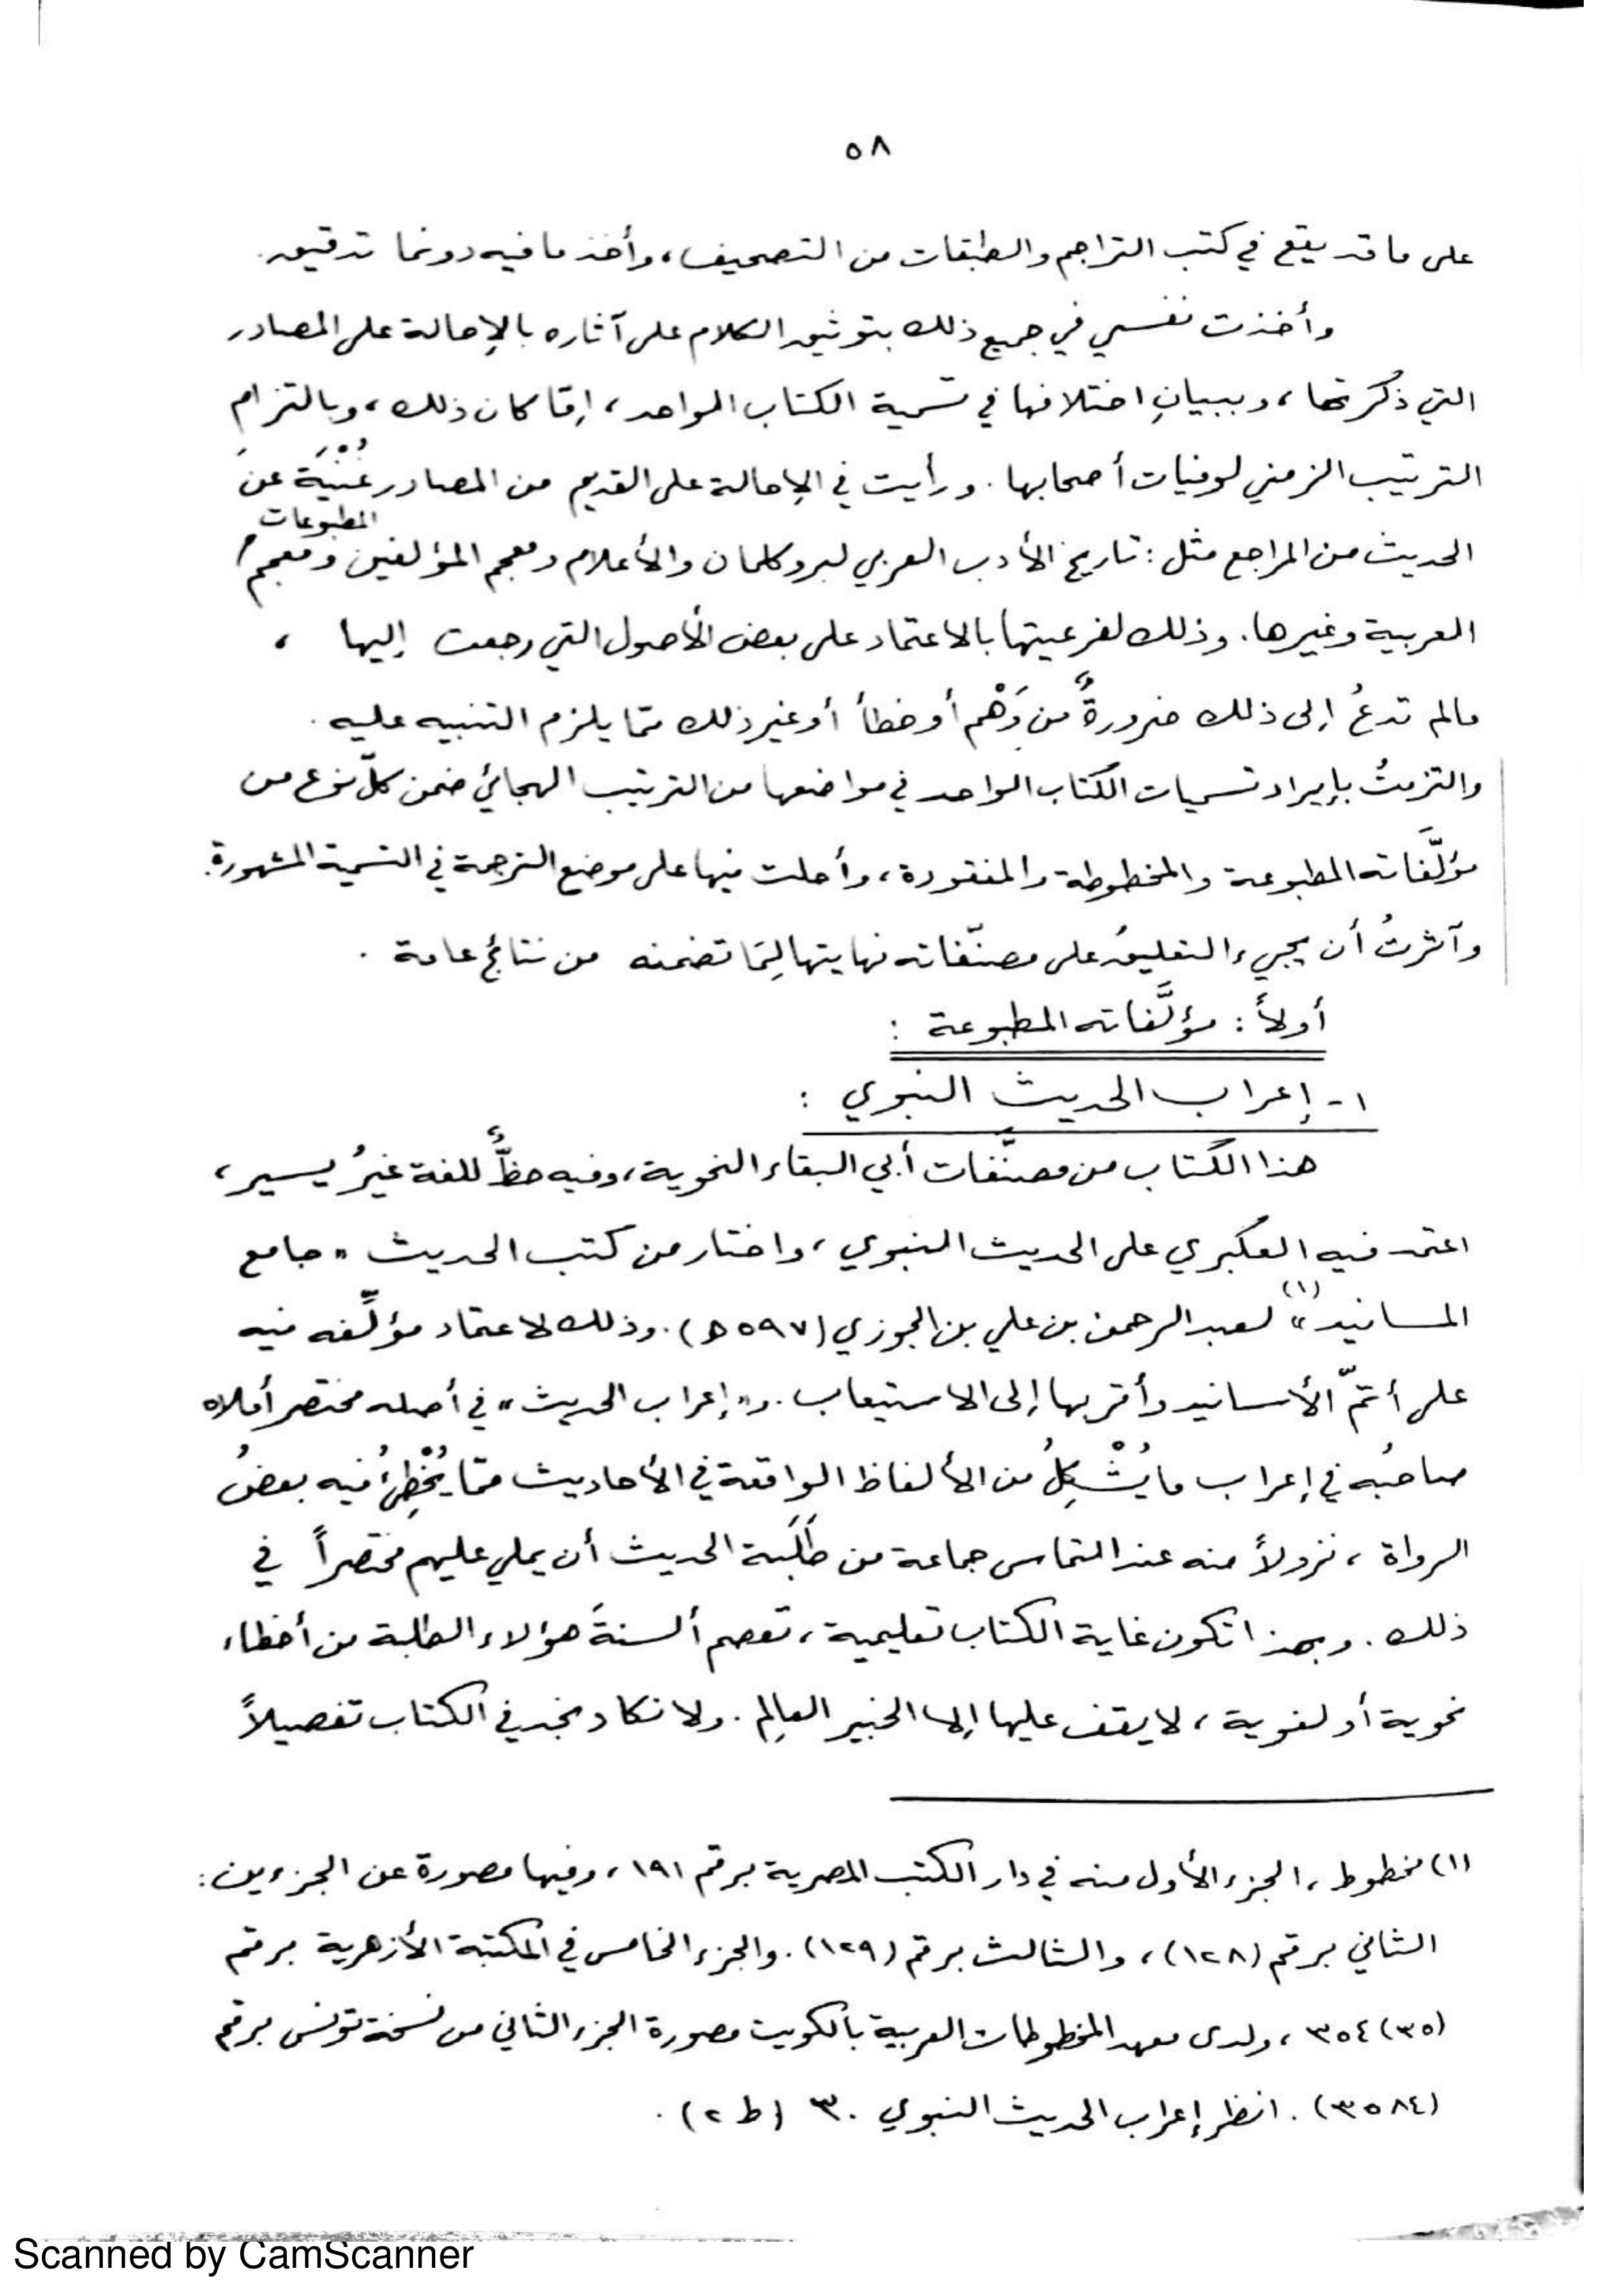 ٥٨
على ما قد يقع في كتب التراجم والطبقات من التصحيف، وأخذ ما فيه دونما تدقيق.
وأخذت نفسي في جميع ذلك بتوثيق الكلام على آثاره بالإحالة على المصادر
التي ذكرتها، وببيانِ اختلافها في تسمية الكتاب الواحد، إمّا كان ذلك، وبالتزام
الترتيب الزمني لوفيات أصحابها. ورأيت في الإحالة على القديم من المصادر غُنْيَةً عن
الحديث من المراجع مثل: تاريخ الأدب العربي لبروكلمان والأعلام ومعجم المؤلفين ومعجم المطبوعات
العربية وغيرها. وذلك لفرعيتها بالاعتماد على بعض الأصول التي رجعت إليها ،
مالم تدعُ إلى ذلك ضرورةٌ من وَهْم أو خطأ أو غير ذلك ممّا يلزم التنبيه عليه .
والتزمتُ بإيراد تسميات الكتاب الواحد في مواضعها من الترتيب الهجائي ضمن كلّ نوع من
مؤلَّفاته المطبوعة والمخطوطة والمفقودة، وأحلت فيها على موضع الترجمة في التسمية المشهورة.
وآثرتُ أن يجيء التعليق على مصنّفاته نهايتها لِمَا تضمنه من نتائج عامة .
أولاً : مؤلَّفاته المطبوعة :
١- إعراب الحديث النبوي :
هذا الكتاب من مصنَّفات أبي البقاء النحوية، وفيه حظٌّ للغة غيرُ يسير،
اعتمد فيه العكبري على الحديث النبوي، واختار من كتب الحديث " جامع
المسانيد"(١) لعبد الرحمن بن علي بن الجوزي (٥٩٧ه). وذلك لاعتماد مؤلِّفه فيه
على أتمّ الأسانيد وأقربها إلى الاستيعاب. و"إعراب الحديث" في أصله مختصر أملاه
صاحبُه في إعراب ما يُشْكِلُ من الألفاظ الواقعة في الأحاديث ممّا يُخْطِئُ فيه بعضُ
الرواة، نزولاً منه عند التماس جماعة من طَلَبة الحديث أن يملي عليهم مختصراً في
ذلك. وبهذا تكون غاية الكتاب تعليمية، تعصم ألسنةَ هؤلاء الطلبة من أخطاء
نحوية أو لغوية، لا يقف عليها إلا الخبير العالِم. ولا نكاد نجد في الكتاب تفصيلاً
(١) مخطوط، الجزء الأول منه في دار الكتب المصرية برقم ١٩١، وفيها مصورة عن الجزءين:
الثاني برقم (١٢٨)، والثالث برقم (١٢٩). والجزء الخامس في المكتبة الأزهرية برقم
(٣٥) ٣٥٤، ولدى معهد المخطوطات العربية بالكويت مصورة الجزء الثاني من نسخة تونس برقم
(٣٥٨٤). انظر إعراب الحديث النبوي ٣٠ (ط٢) .
Scanned by CamScanner